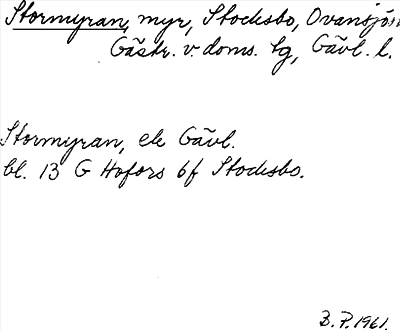 Stormyran, myr, Stocksbo, Ovansjö s
Gästr. v. doms. lg, Gävl. l.
Stormyran, ek Gävl.
bl. 13 G Hofors 6f Stocksbo.
B. P. 1961.